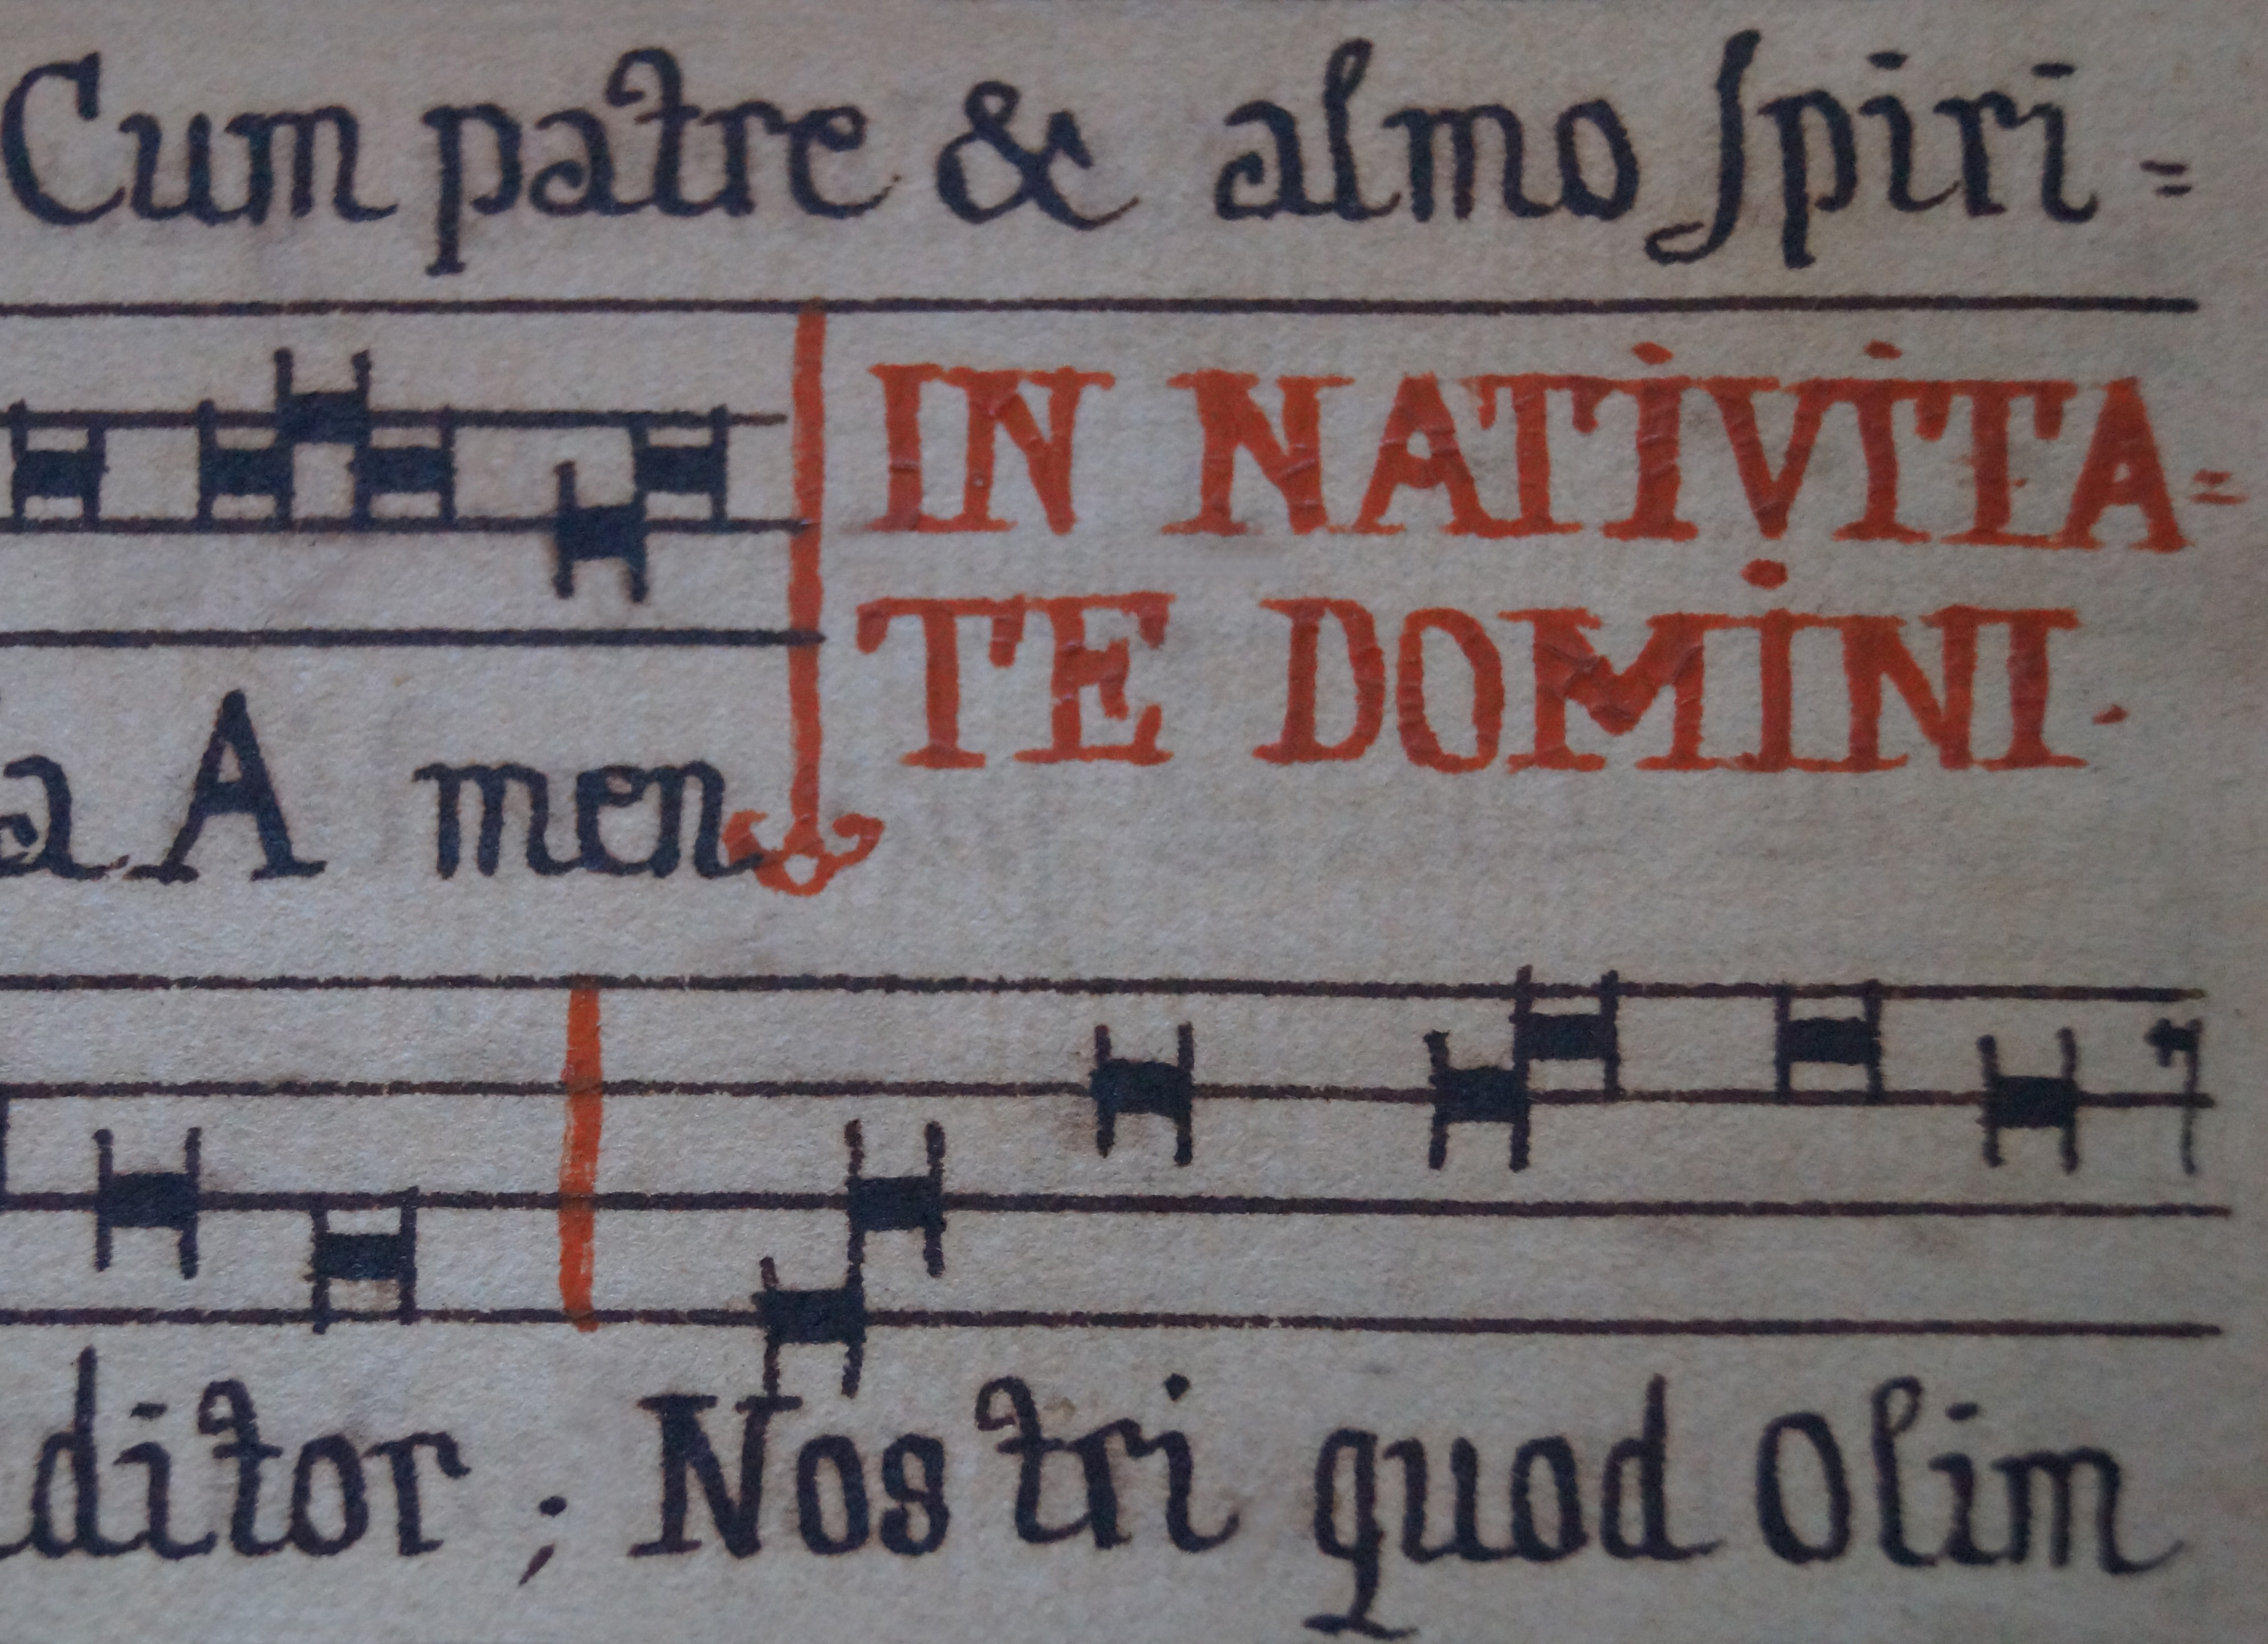 Cum patre & almo ſpiri=
IN NATIVITA=
TE DOMINI.
a A men.
ditor ; Nos tri quod Olim